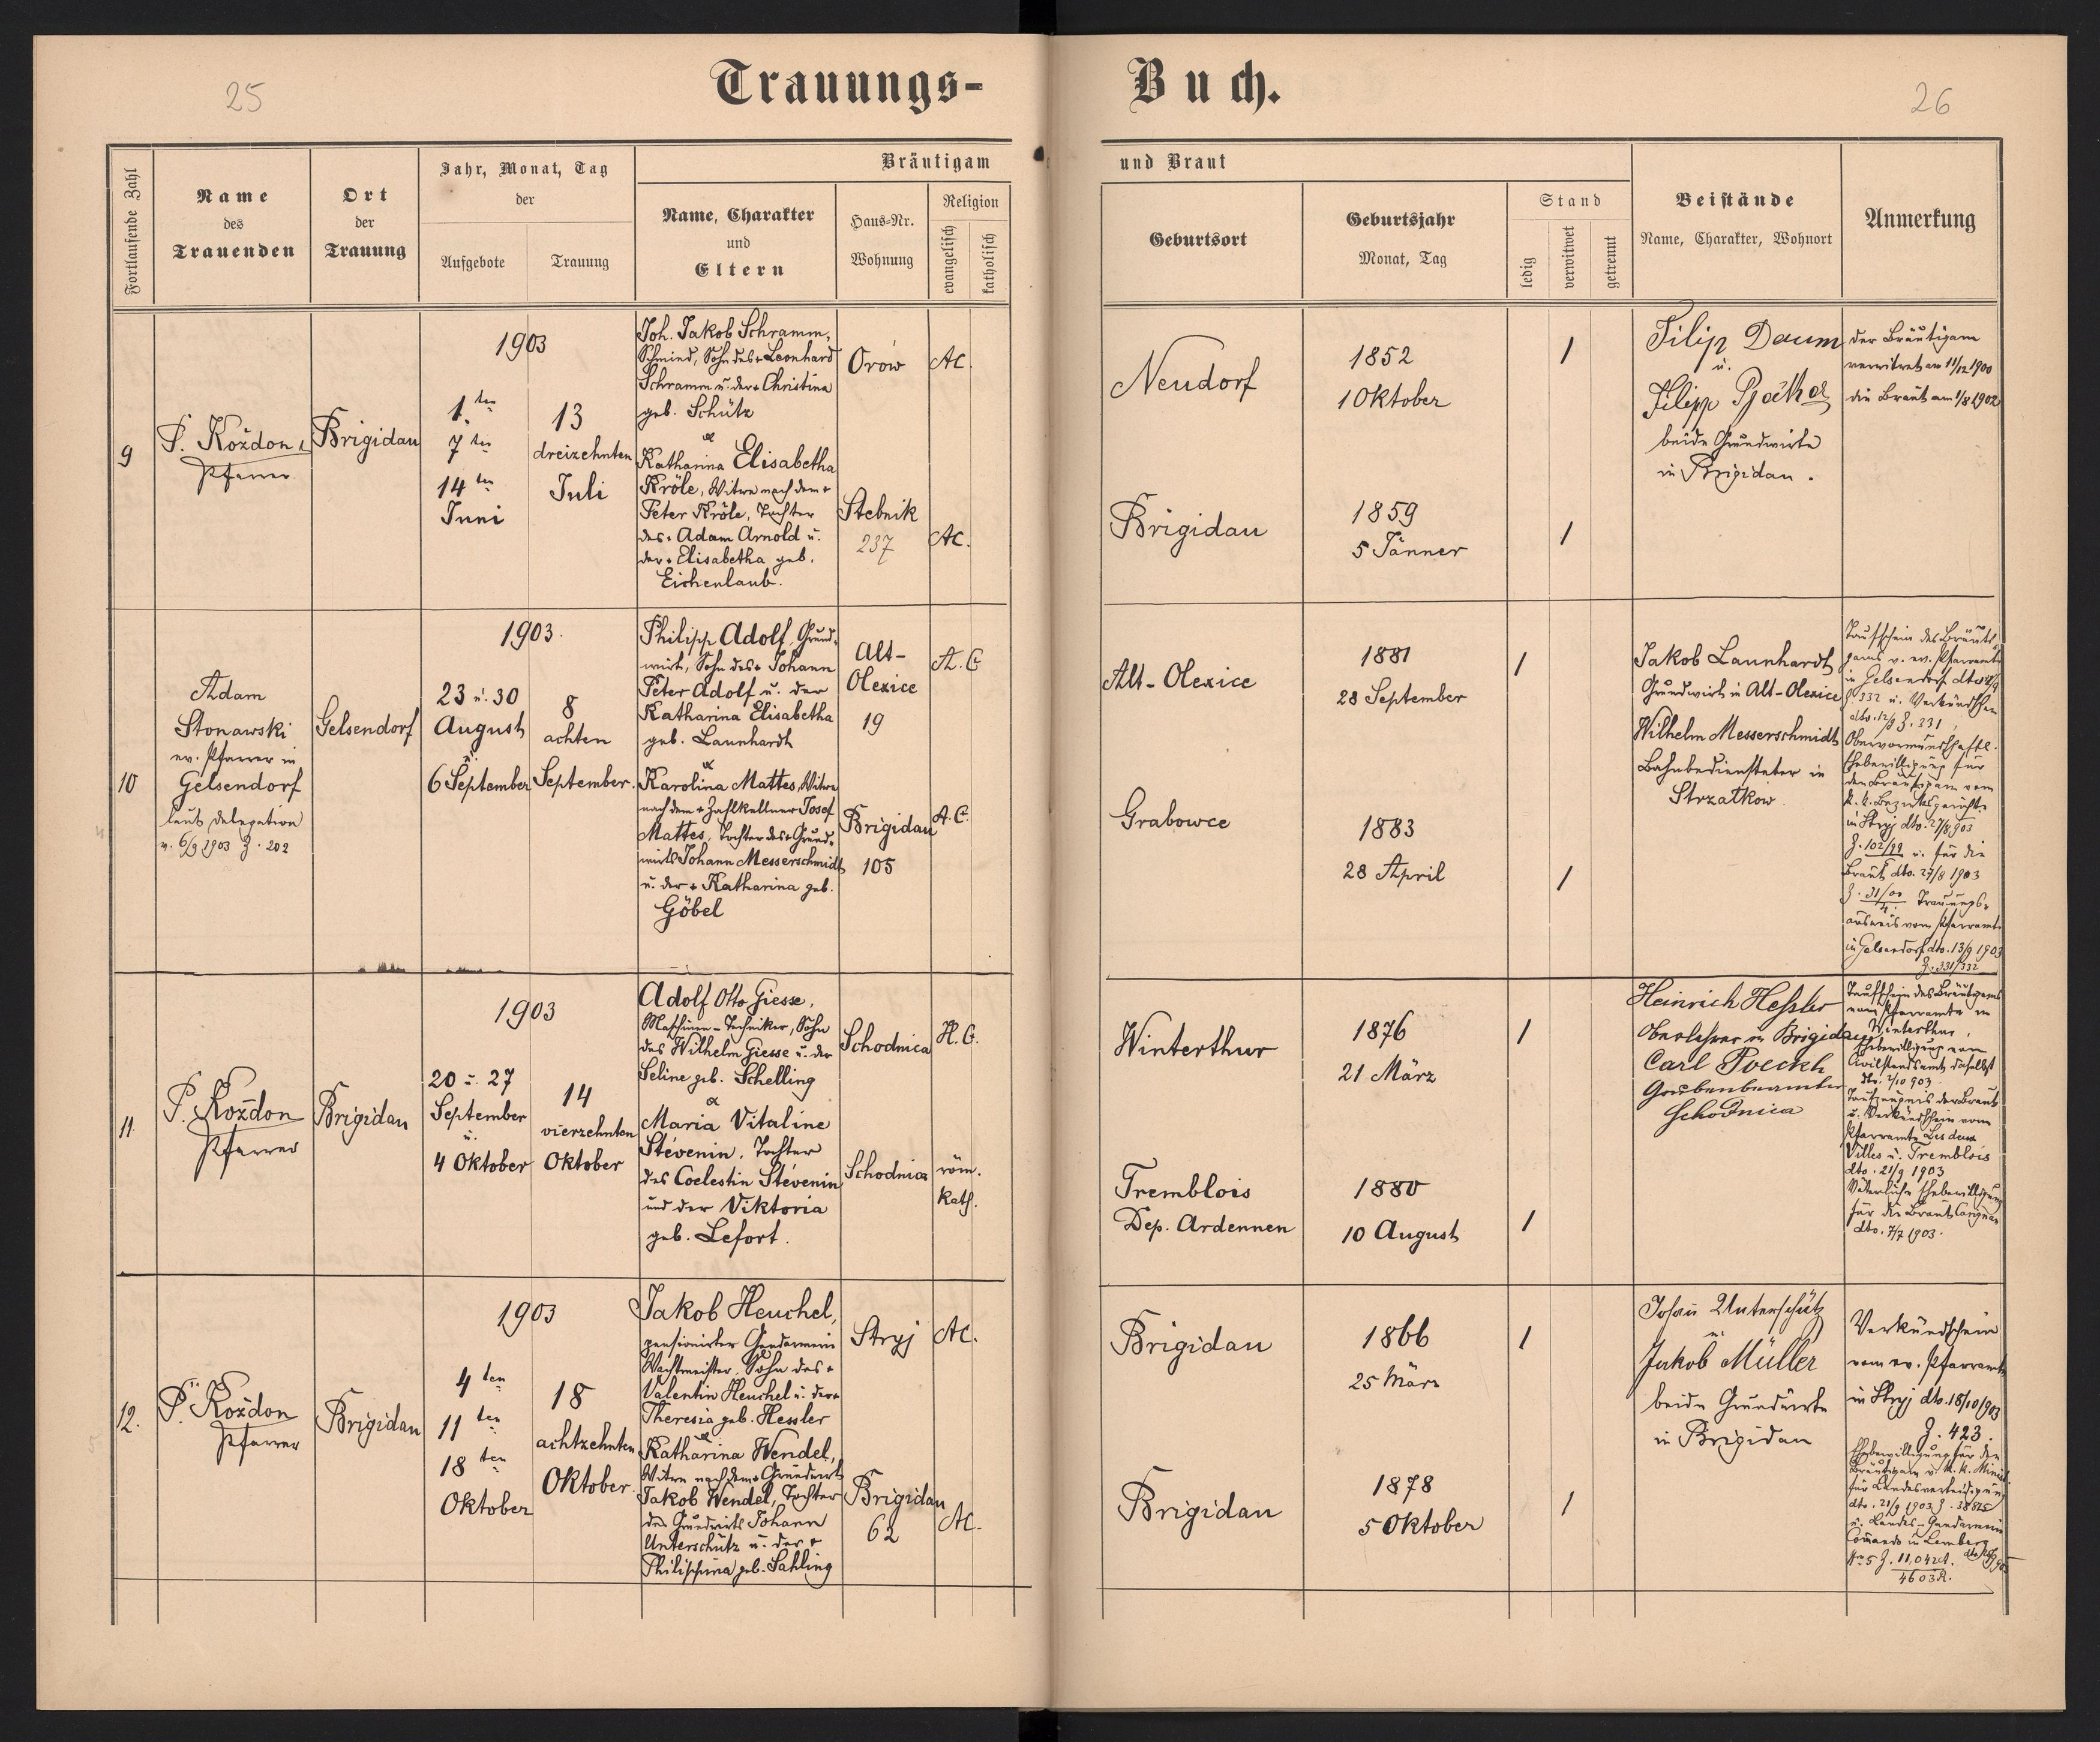 25
Trauungs-
Buch.
26
Fortlaufende Zahl
Name
des
Trauenden
Ort
der
Trauung
Jahr, Monat, Tag
der
Aufgebote
Trauung
Bräutigam
Name, Charakter
und
Eltern
Haus-Nr.
Wohnung
Religion
evangelisch
katholisch
und Braut
Geburtsort
Geburtsjahr
Monat, Tag
Stand
ledig
verwitwet
getrennt
Beistände
Name, Charakter, Wohnort
Anmerkung
9
P. Kożdon
Pfarrer
Brigidau
1903
1.ten
7ten
14ten
Juni
13
dreizehnten
Juli
Joh. Jakob Schramm,
Schmied, Sohn des + Leonhard
Schramm u. der + Christina
geb. Schütz
&
Katharina Elisabetha
Kröle, Witwe nach dem +
Peter Kröle, Tochter
des + Adam Arnold u.
der + Elisabetha geb.
Eichenlaub.
Orów
AC.
Stebnik
237
AC.
Neudorf
1852
1 Oktober
1
Brigidau
1859
5 Jänner
1
Filip Daum
u.
Filipp
beide Grundwirte
in Brigidau.
der Bräutigam
verwitwet am 11/12 1900
die Braut am 1/8 1902
10
Adam
Stonawski
ev. Pfarrer in
Gelsendorf
laut Delegation
v. 6/9 1903 Z. 202
Gelsendorf
1903.
23 u. 30
August
u.
6 September
8
achten
September.
Philipp Adolf, Grund-
wirt, Sohn des + Johann
Peter Adolf u. der
Katharina Elisabetha
geb. Launhardt
&
Karolina Mattes, Witwe
nach dem + Zahlkellner Josef
Mattes, Tochter des + Grund-
wirts Johann Messerschmidt
u. der + Katharina geb.
Göbel
Alt-
Olexice
19
A. C
Brigidau
105
A. C.
Alt-Olexice
1881
28 September
1
Grabowce
1883
28 April
1
Jakob Launhardt
Grundwirt in Alt-Olexice
Wilhelm Messerschmidt
Bahnbediensteter in
Strzałkow
Taufschein des Bräuti-
gams v. ev. Pfarramte
in Gelsendorf dto
Z. 332 u. Verkündschein
dto. 12/9 Z. 331,
Obervormundschaftl.
Ehebewilligung für
den Bräutigam vom
k. k. Bezirksgerichte
in Stryj dto. 27/8 903
Z. 102/99 u. für die
Braut dto. 27/8 1903
Z. 31/00 Trauungs-
ausweis vom Pfarramte
in Gelsendorf dto. 13/9 1903
Z. 331/332
11
P. Kożdon
Pfarrer
Brigidau
1903
20 u. 27
September
u.
4 Oktober
14
vierzehnten
Oktober
Adolf Otto Giesse,
Maschinen-Techniker, Sohn
des Wilhelm Giesse u. der
Seline geb. Schelling
&
Maria Vitaline
Stévenin, Tochter
des Coelestin Stévenin
und der Viktoria
geb. Lefort.
Schodnica
H. C.
Schodnica
röm.
kath.
Winterthur
1876
21 März
1
Tremblois
Dep. Ardennen
1880
10 August
1
Heinrich Hessler
Oberlehrer in Brigidau
Carl Poeckh
Grubenbeamter
Schodnica
Taufschein des Bräutigams
vom Pfarramte in
Winterthur,
Ehebewilligung vom
Civilstandsamte daselbst
dto. 2/10 903.
Taufzeugnis der Braut
u. Verkündschein vom
Pfarramte Les deux
Villes u. Tremblois
dto. 21/9 1903
Väterliche Ehebewilligung
für die Braut Carignan
dto. 7/7 1903.
12.
P. Kożdon
Pfarrer
Brigidau
1903
4ten
11ten
18ten
Oktober
18
achtzehnten
Oktober.
Jakob Heuchel,
pensionirter Gendarmerie
Wachtmeister, Sohn des +
Valentin Heuchel u. der +
Theresia geb. Hessler
&
Katharina Wendel,
Witwe nach dem + Grundwirt
Jakob Wendel, Tochter
des Grundwirts Johann
Unterschütz u. der +
Philippina geb. Sahling
Stryj
AC.
Brigidau
62
AC.
Brigidau
1866
25 März
1
Brigidau
1878
5 Oktober
1
Johann Unterschütz
u.
Jakob Müller
beide Grundwirte
in Brigidau
Verkündschein
vom ev. Pfarramte
in Stryj dto. 18/10 903
Z. 423.
Ehebewilligung für den
Bräutigam v. k. k. Minist.
für Landesverteidigung
dto. 21/9 1903 Z. 38815
u. Landes-Gendarmerie
Comando in Lemberg
Nro 5 Z. 11,042
4603R.